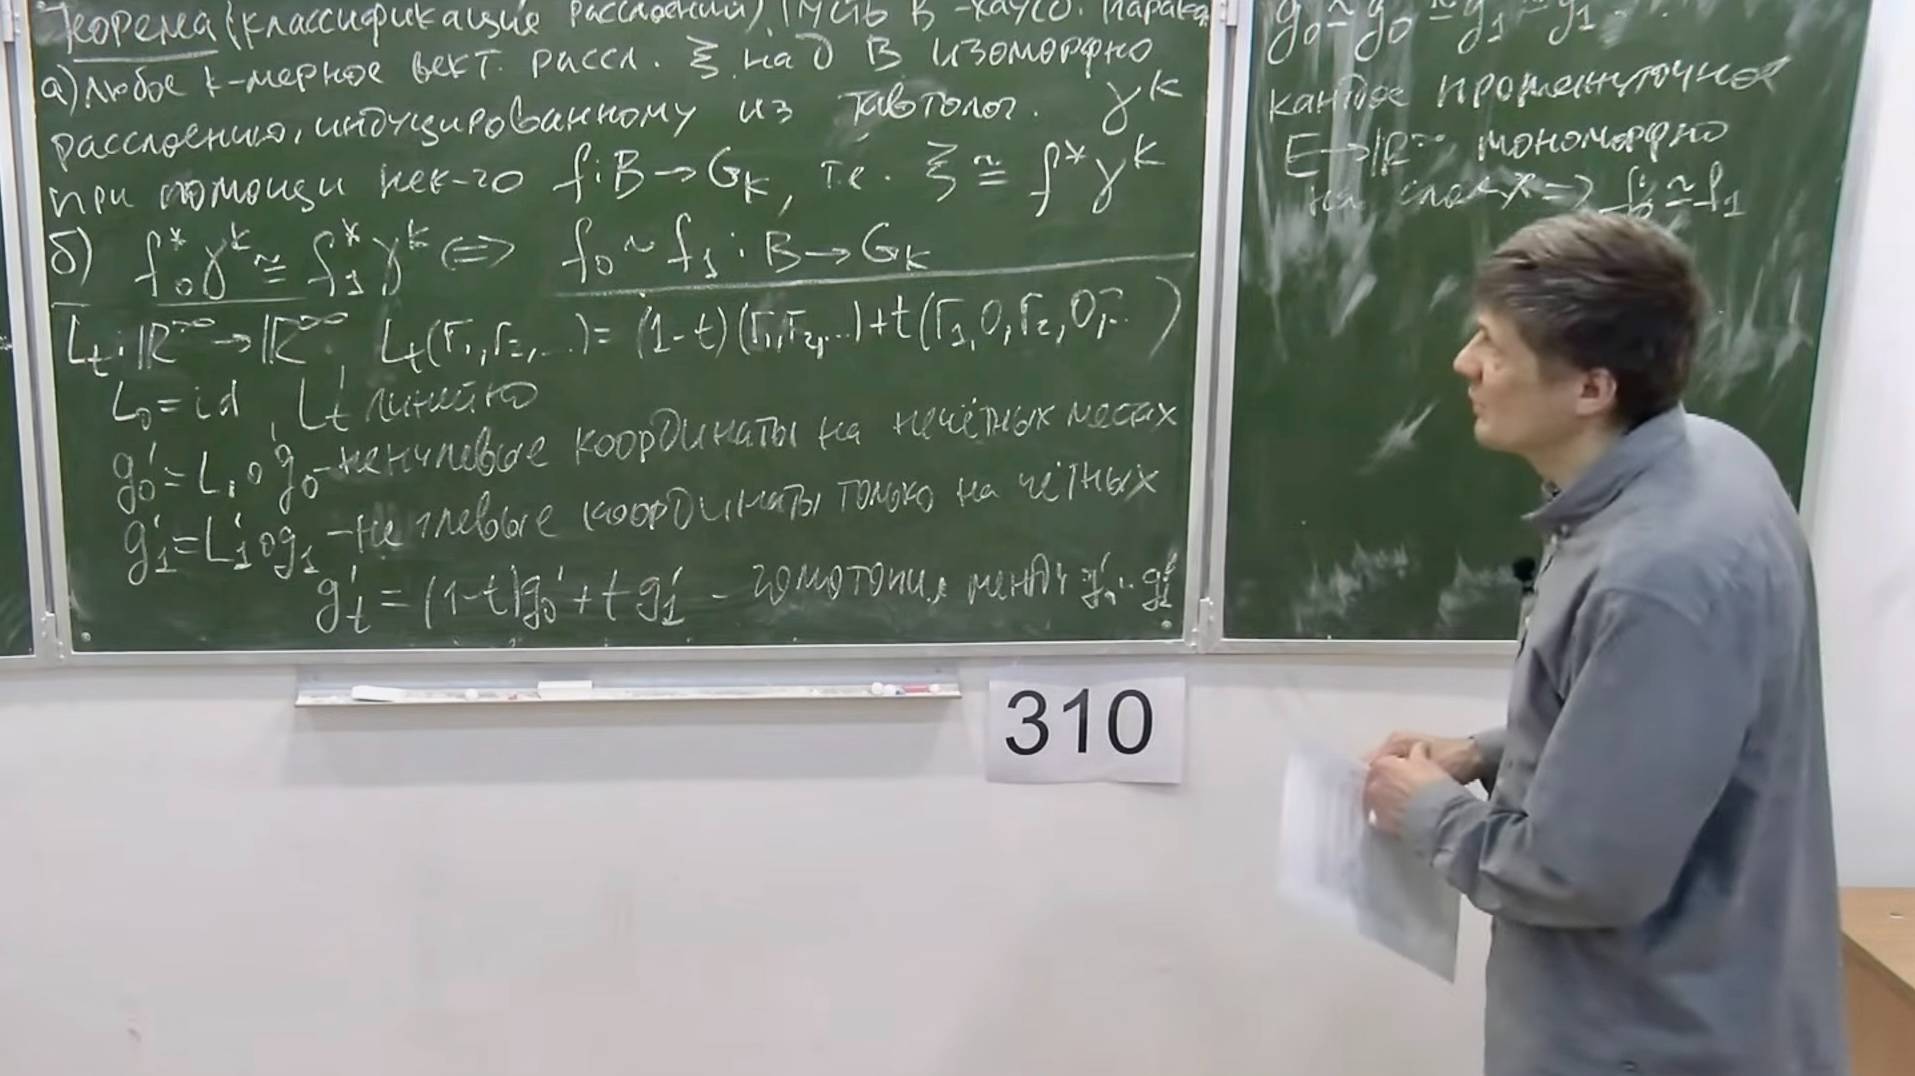 Теорема (классификация расслоений) Пусть B - хаусд. парак
а) Любое k-мерное вект. рассл. ξ над B изоморфно
расслоению, индуцированному из тавтолог. γ^k
при помощи нек-го f: B → G_k, т.е. ξ ≅ f*γ^k
б) f_0^*γ^k ≅ f_1^*γ^k ⇔ f_0 ~ f_1 : B → G_k
L_t: ℝ^∞ → ℝ^∞ L_t(r_1, r_2, ...) = (1-t)(r_1, r_2, ...) + t(r_1, 0, r_2, 0, ...)
L_0 = id, L'_t линейно
g'_0 = L_1 ∘ g_0 - ненулевые координаты на нечётных местах
g'_1 = L'_1 ∘ g_1 - координаты только на чётных
g'_t = (1-t)g'_0 + t g'_1 - гомотопия между g'_0 и g'_1
g_0 ≃ g'_0 ≃ g'_1 ≃ g_1
каждое промежуточное
E → ℝ^∞ мономорфно
на слоях ⇒ f_0 ≃ f_1
310